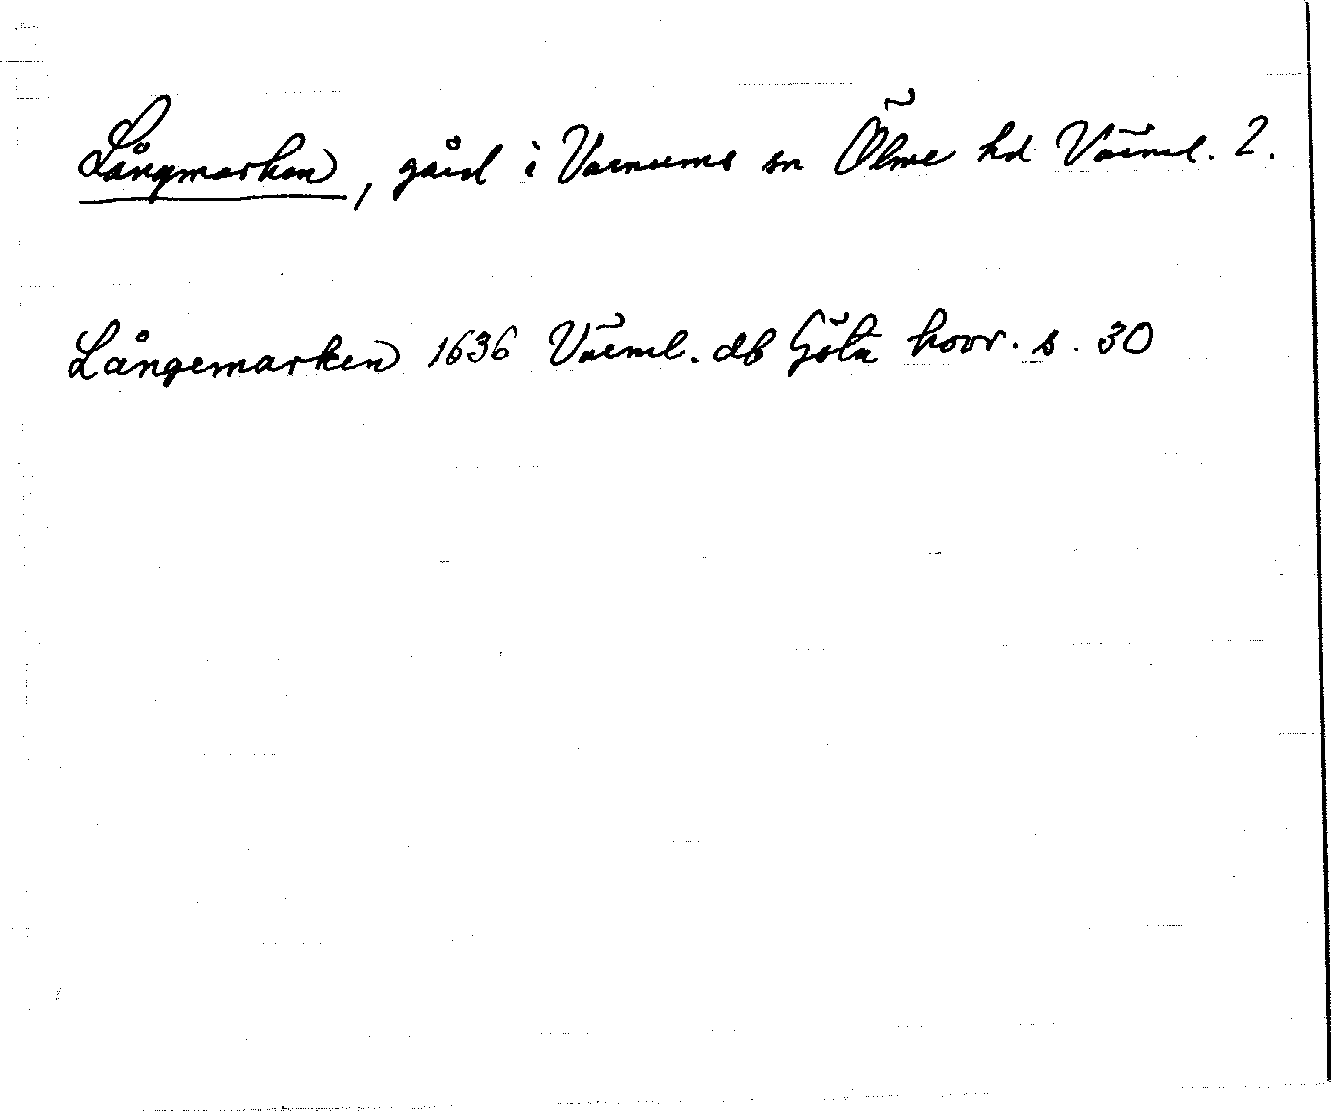 Långmarken, gård i Varnums sn Ölme hd Värml. 2.
Långemarken 1636 Värml. db Göta hovr. s. 30